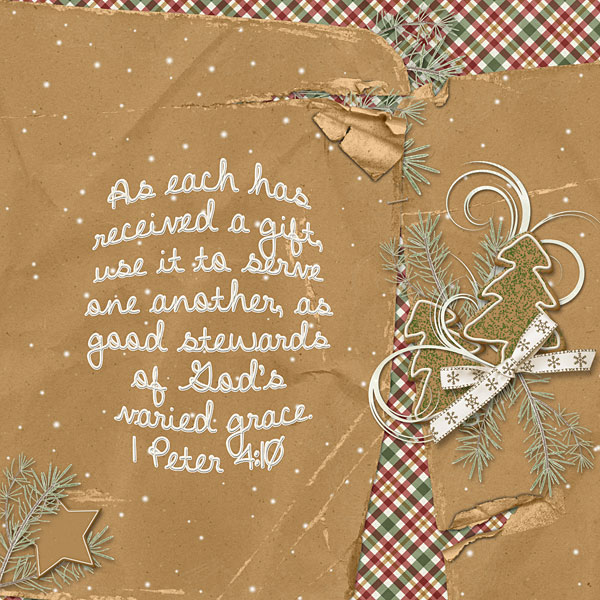 As each has
received a gift,
use it to serve
one another, as
good stewards
of God's
varied grace.
1 Peter 4:10